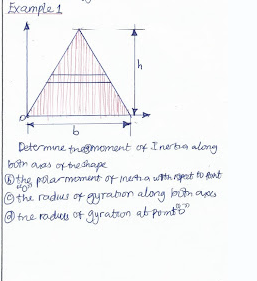 Example 1
h
O
b
Determine the @moment of Inertia along
both axes of the shape
(b) the polar moment of inertia with repect to point
"O"
(c) the radius of gyration along both axes
(d) the radius of gyration at point "O"